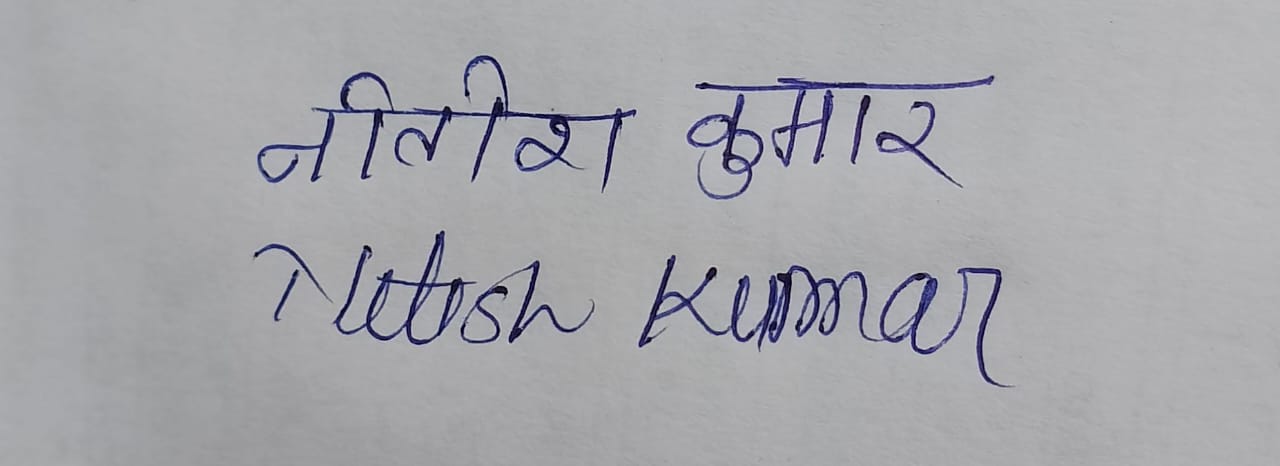 नीतीश कुमार
Nitish Kumar